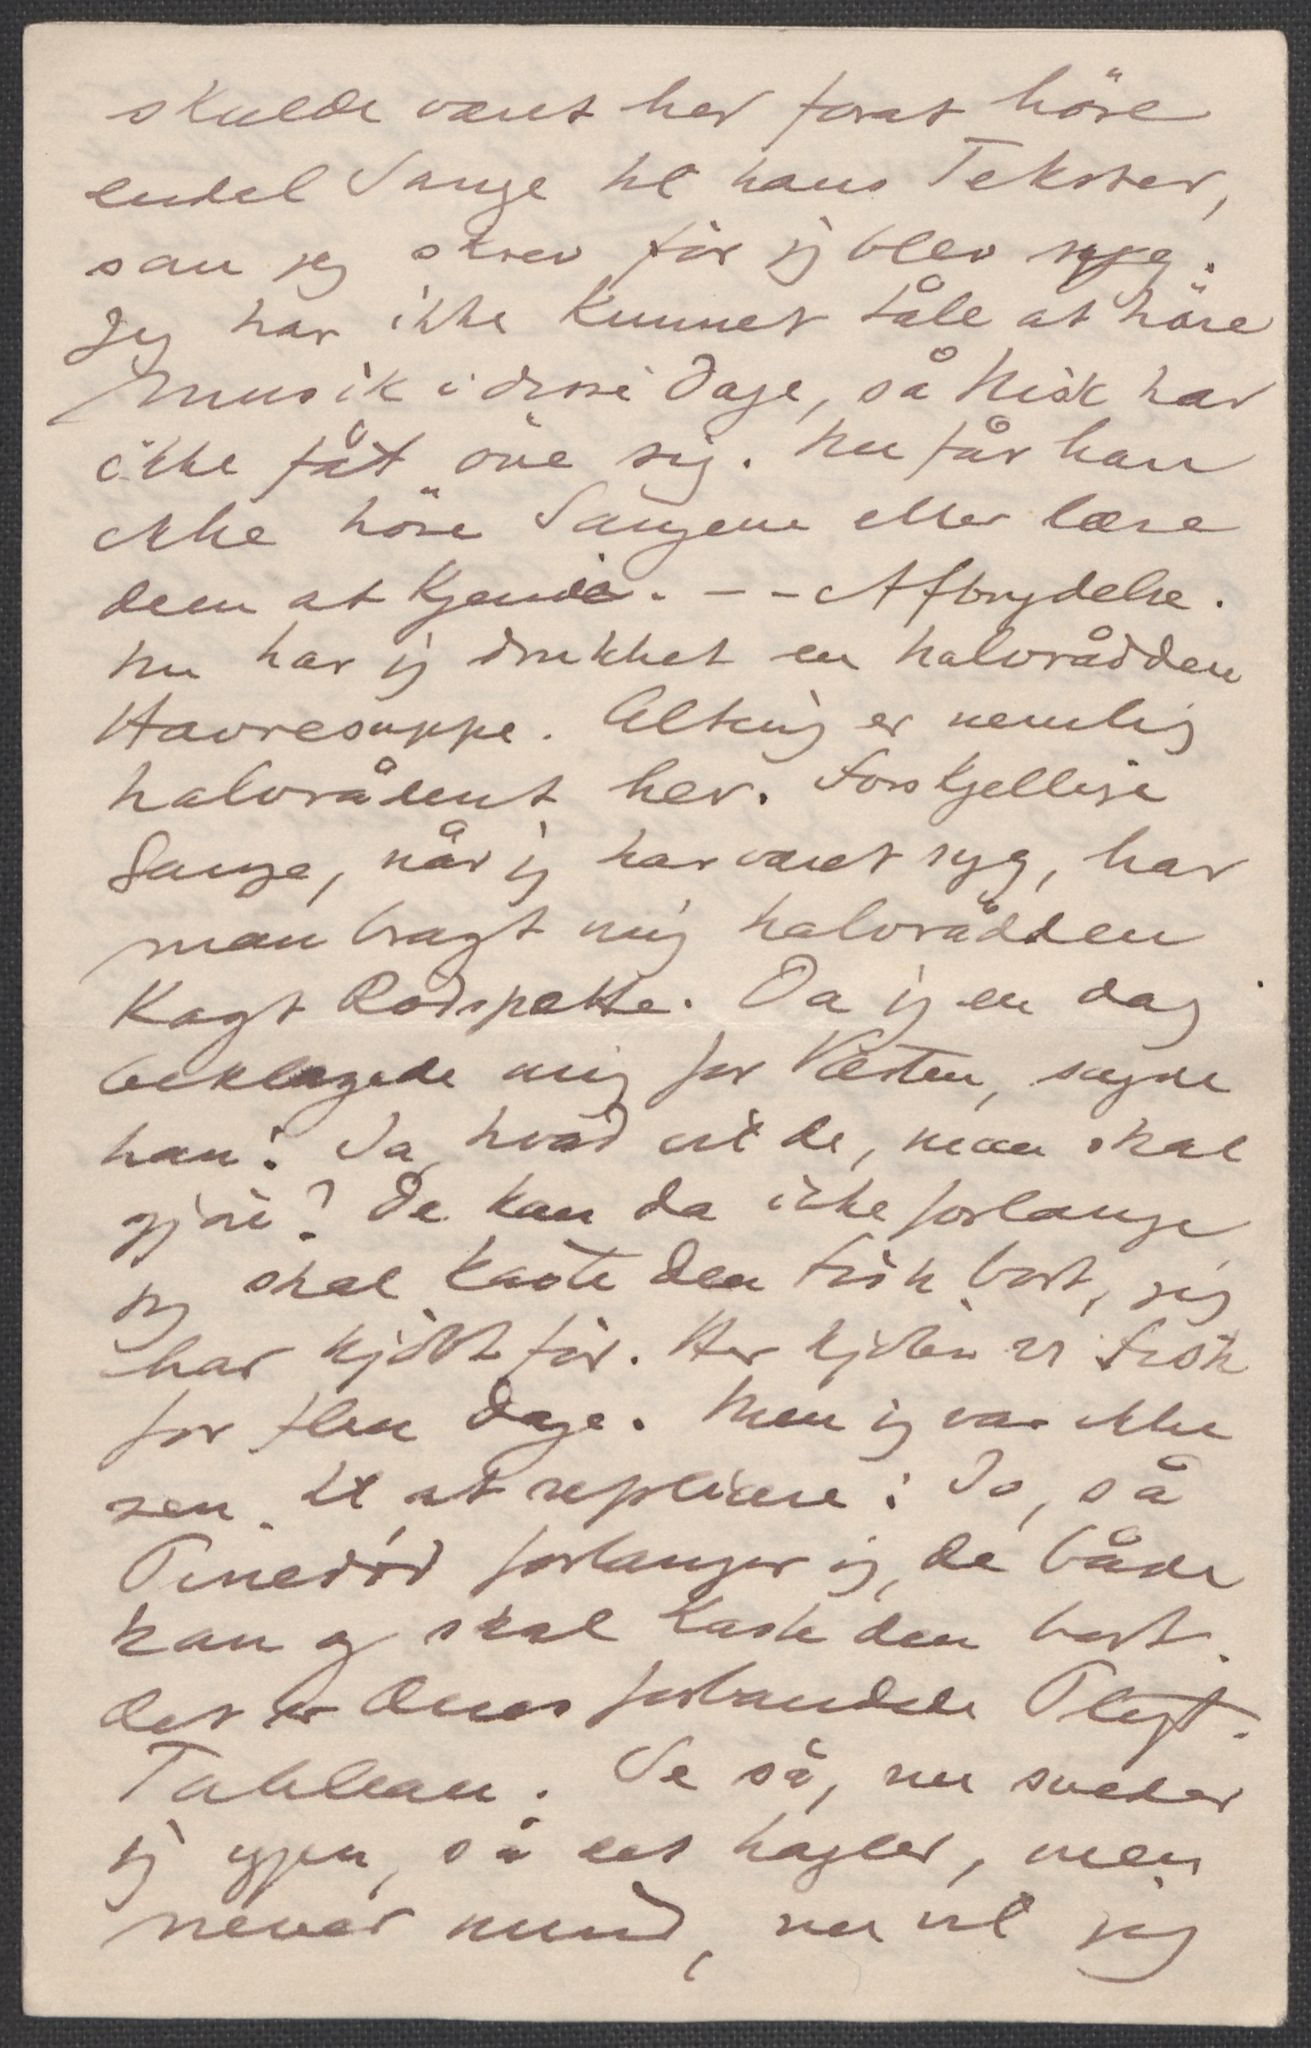 skulde været her forat höre
endel Sange til hans Tekster,
som jeg skrev för jeg blev syg.
Jeg har ikke kunnet tåle at höre
Musik i disse Dage, så Nisk har
ikke fåt öve sig. Nu får han
ikke höre Sangene eller lære
dem at kjende. - - Afbrydelse.
Nu har jeg drukket en halvrådden
Havresuppe. Alting er nemlig
halvrådent her. Forskjellige
Gange, når jeg har været syg, har
man bragt mig halvrådden
Kogt Rödspætte. Da jeg en dag
beklagede mig for Værten, sagde
han: Ja, hvad vil De, man skal
gjöre? De kan da ikke forlange
jeg skal kaste den Fisk bort, jeg
har kjöbt för. Her kjöber vi Fisk
for flere Dage. Men jeg var ikke
sen til at replicere: Jo, så
Pinedöd forlanger jeg, De både
kan og skal kaste den bort.
Det er Deres forbandede Pligt.
Tableau. Se så, nu sveder
jeg igjen, så det hagler, men
never mind, nu vil jeg